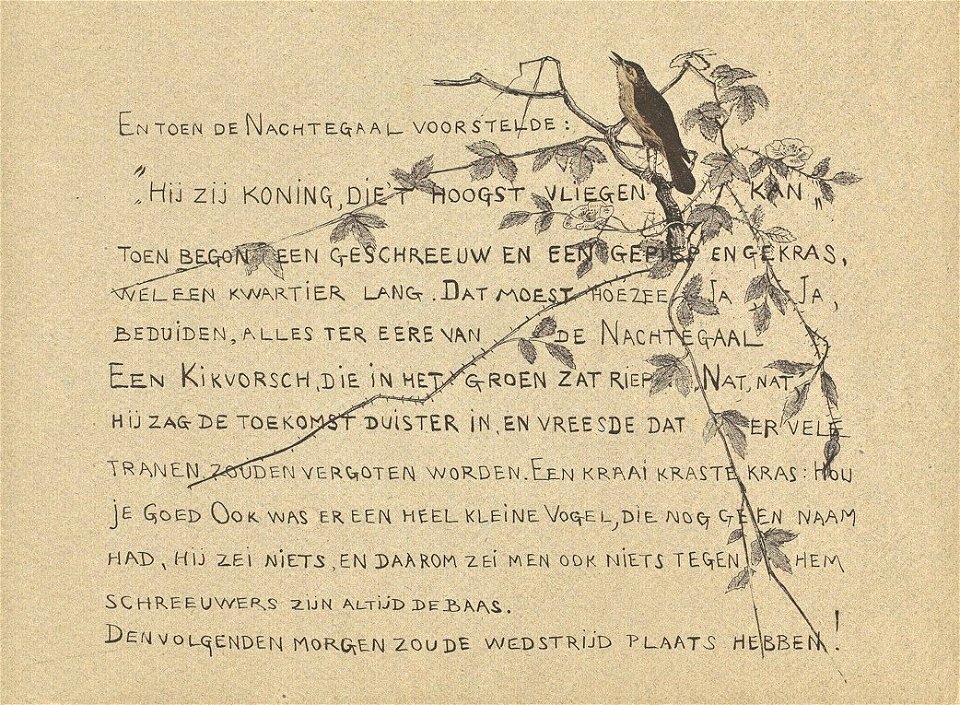 EN TOEN DE NACHTEGAAL VOORSTELDE:
"HIJ ZIJ KONING, DIE'T HOOGST VLIEGEN KAN„
TOEN BEGON EEN GESCHREEUW EN EEN GEPIEP EN GEKRAS,
WEL EEN KWARTIER LANG. DAT MOEST HOEZEE JA JA,
BEDUIDEN, ALLES TER EERE VAN DE NACHTEGAAL
EEN KIKVORSCH, DIE IN HET GROEN ZAT RIEP NAT, NAT,
HIJ ZAG DE TOEKOMST DUISTER IN, EN VREESDE DAT ER VELE
TRANEN ZOUDEN VERGOTEN WORDEN. EEN KRAAI KRASTE KRAS: HOU
JE GOED OOK WAS ER EEN HEEL KLEINE VOGEL, DIE NOG GEEN NAAM
HAD, HIJ ZEI NIETS, EN DAAROM ZEI MEN OOK NIETS TEGEN HEM
SCHREEUWERS ZIJN ALTIJD DE BAAS.
DEN VOLGENDEN MORGEN ZOU DE WEDSTRIJD PLAATS HEBBEN!